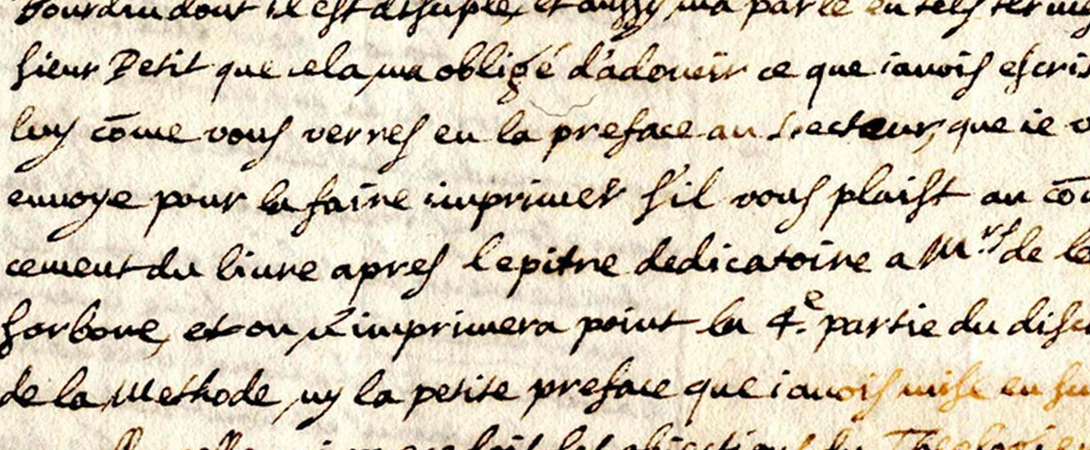 bourdin dont il est disciple, et aussy m'a parlé en tels
sieur Petit que cela m'a obligé d'adoucir ce que iauois
luy cõme vous verres en la preface au Lecteur, que ie
enuoye pour la faire imprimer s'il vous plaist au
cement du liure apres lepitre dedicatoire a Mrs de
sorbone, et on n'imprimera point la 4e partie du
de la Methode, ny la petite preface que iauois mise en